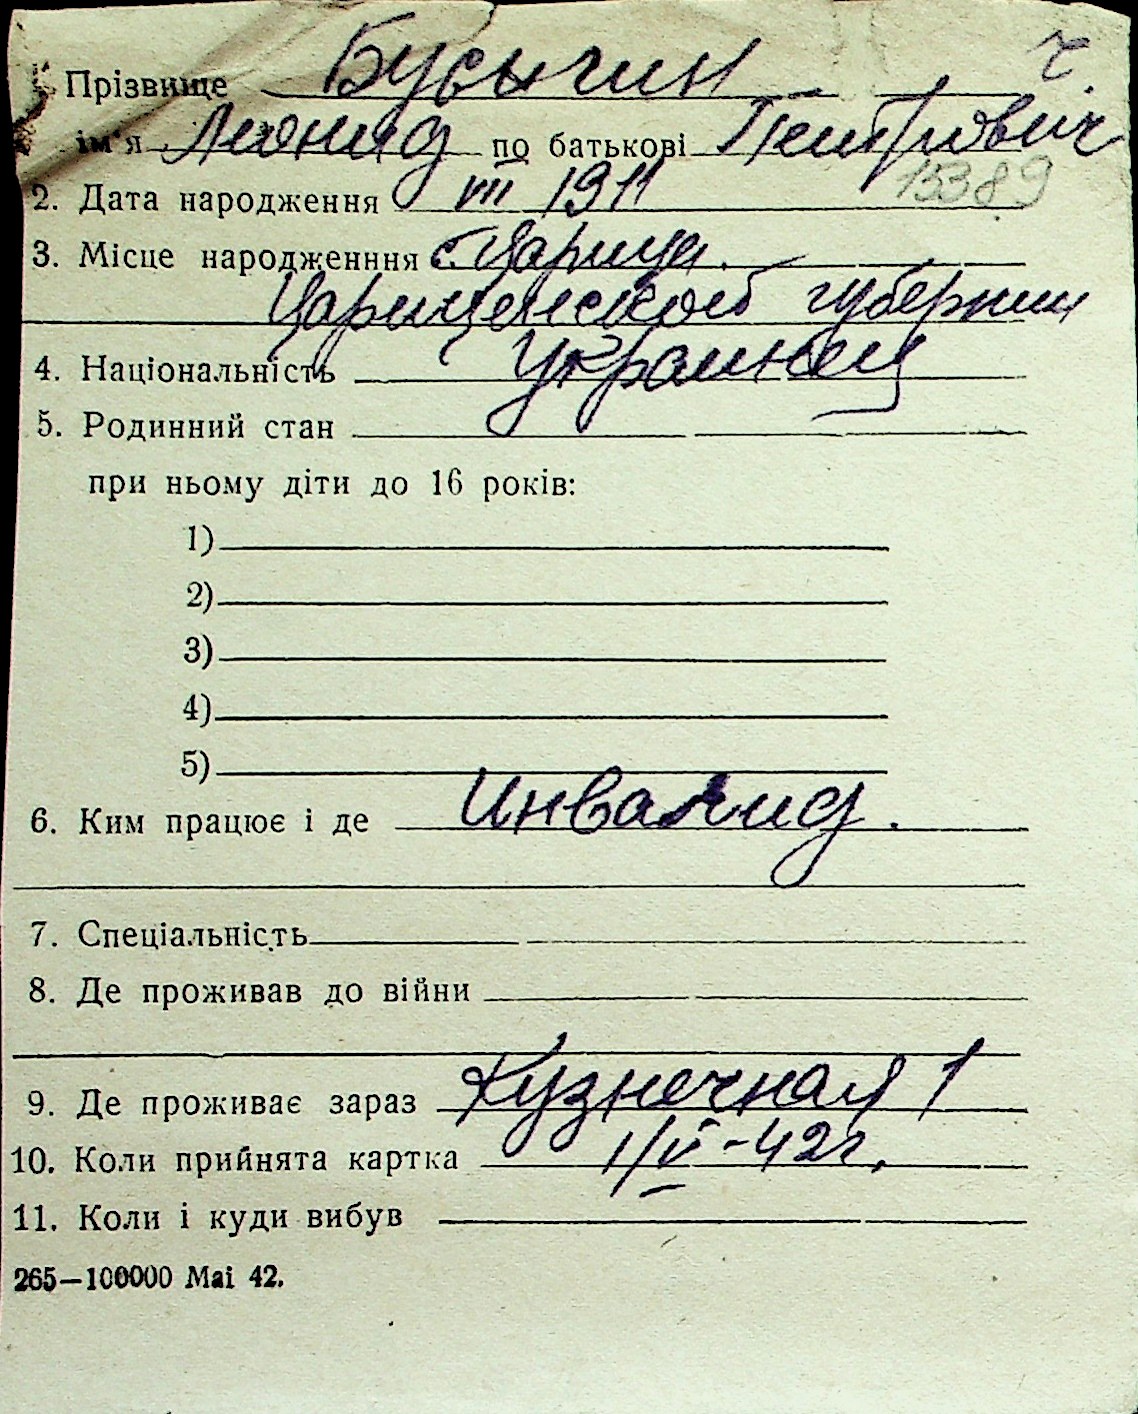 Прізвище Бусыгин ч.
ім'я Леонид по батькові Пètрович
2. Дата народження VIII 1911 15389
3. Місце народженння с. Царица.
Цариценской губернии
4. Національність Украинец
5. Родинний стан
при ньому діти до 16 років:
1)
2)
3)
4)
5)
6. Ким працює і де Инвалид.
7. Спеціальність
8. Де проживав до війни
9. Де проживає зараз Кузнечная 1
10. Коли прийнята картка 1/V-42г.
11. Коли і куди вибув
265—100000 Mai 42.